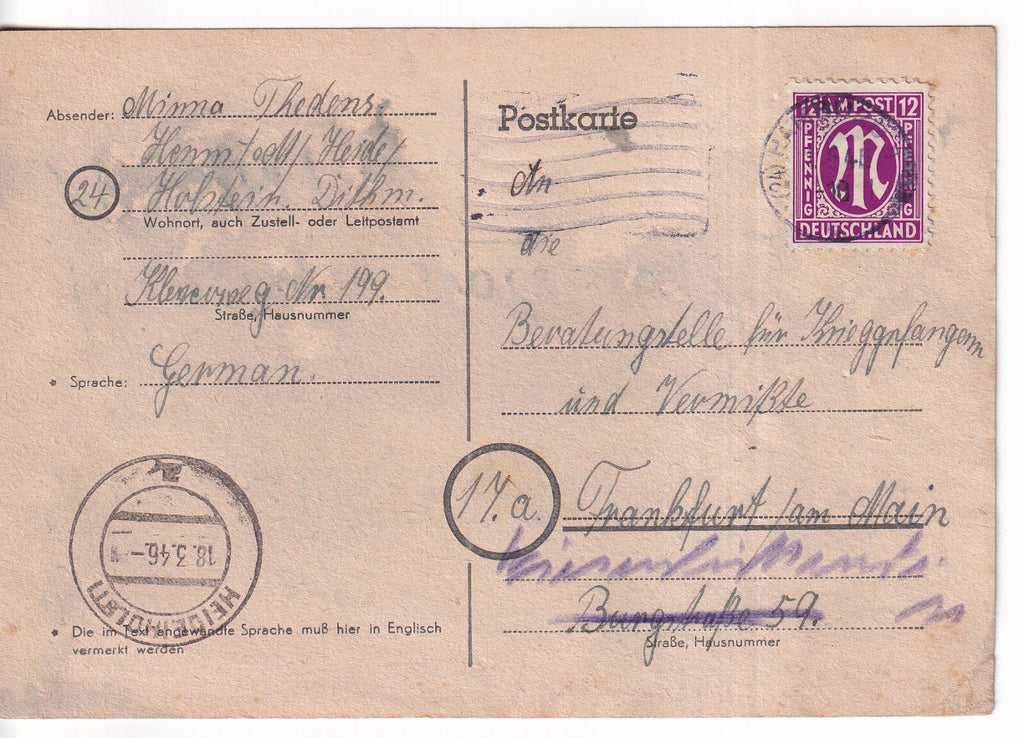 Absender: Minna Thedens.
Hennstedt/Heide/
24
Holstein. Dithm.
Wohnort, auch Zustell- oder Leitpostamt
Nr 199.
Straße, Hausnummer
* Sprache: German.
18.3.46.
HEIDE (HOLST)
* Die im Text angewandte Sprache muß hier in Englisch
vermerkt werden
Postkarte
12 AM POST 12
PFENNIG
PFENNIG
M
DEUTSCHLAND
An
die
Beratungstelle für Krieggefangenn
und Vermißte
17.a.
Frankfurt/am Main
Burgstraße 59.
Straße, Hausnummer